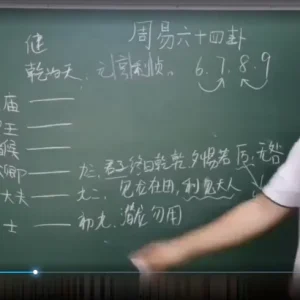 周易六十四卦
健
乾为天、元亨利贞。 6.7.8.9
庙
王
候
卿
大夫
士
九三、君子终日乾乾 夕惕若 厉,无咎
九二、见龙在田,利见大人
初九、潜龙勿用